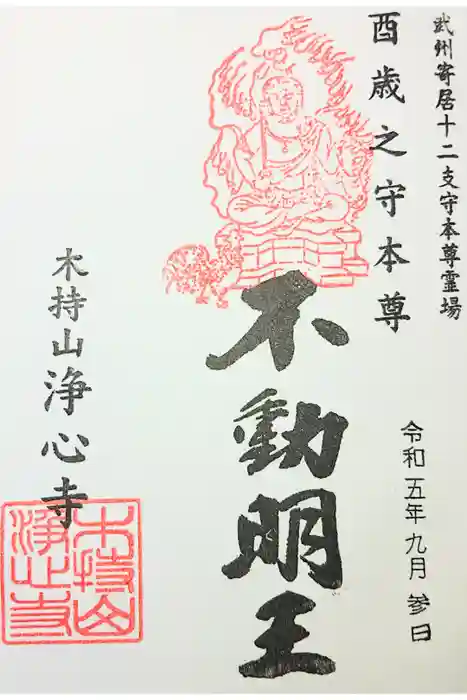 武州寄居十二支守本尊霊場
酉歳之守本尊
不動明王
令和五年九月参日
木持山浄心寺
木持山
浄心寺